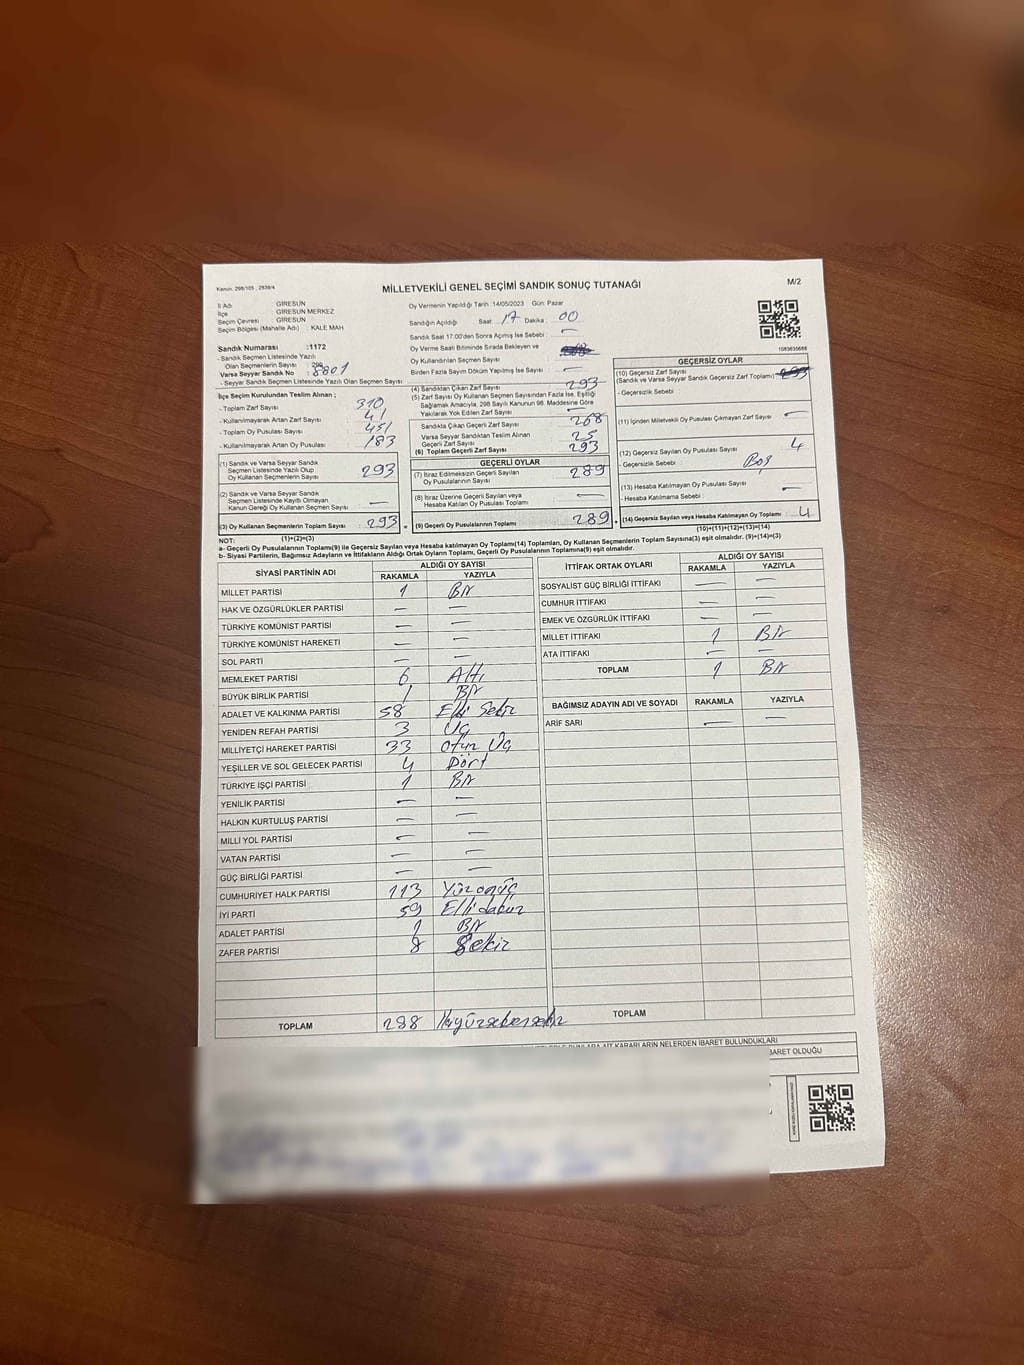 Kanun: 298/105 , 2839/4
MİLLETVEKİLİ GENEL SEÇİMİ SANDIK SONUÇ TUTANAĞI
M/2
İl Adı : GİRESUN
İlçe : GİRESUN MERKEZ
Seçim Çevresi : GİRESUN
Seçim Bölgesi (Mahalle Adı) : KALE MAH
Oy Vermenin Yapıldığı Tarih: 14/05/2023 Gün: Pazar
Sandığın Açıldığı Saat 17 Dakika 00
Sandık Saat 17:00'den Sonra Açılmış İse Sebebi : —
Oy Verme Saati Bitiminde Sırada Bekleyen ve
Oy Kullandırılan Seçmen Sayısı
Birden Fazla Sayım Döküm Yapılmış İse Sayısı : —
Sandık Numarası :1172
- Sandık Seçmen Listesinde Yazılı
Olan Seçmenlerin Sayısı :
Varsa Seyyar Sandık No : 8801
- Seyyar Sandık Seçmen Listesinde Yazılı Olan Seçmen Sayısı:
İlçe Seçim Kurulundan Teslim Alınan ;
- Toplam Zarf Sayısı : 310
- Kullanılmayarak Artan Zarf Sayısı : 41
- Toplam Oy Pusulası Sayısı : 451
- Kullanılmayarak Artan Oy Pusulası : 183
(1) Sandık ve Varsa Seyyar Sandık
Seçmen Listesinde Yazılı Olup
Oy Kullanan Seçmenlerin Sayısı : 293
(2) Sandık ve Varsa Seyyar Sandık
Seçmen Listesinde Kayıtlı Olmayan
Kanun Gereği Oy Kullanan Seçmen Sayısı : —
(3) Oy Kullanan Seçmenlerin Toplam Sayısı : 293
(1)+(2)=(3)
(4) Sandıktan Çıkan Zarf Sayısı : 293
(5) Zarf Sayısı Oy Kullanan Seçmen Sayısından Fazla İse, Eşitliği
Sağlamak Amacıyla, 298 Sayılı Kanunun 98. Maddesine Göre
Yakılarak Yok Edilen Zarf Sayısı : —
Sandıkta Çıkan Geçerli Zarf Sayısı : 268
Varsa Seyyar Sandıktan Teslim Alınan
Geçerli Zarf Sayısı : 25
(6) Toplam Geçerli Zarf Sayısı : 293
GEÇERLİ OYLAR
(7) İtiraz Edilmeksizin Geçerli Sayılan
Oy Pusulasının Sayısı : 289
(8) İtiraz Üzerine Geçerli Sayılan veya
Hesaba Katılan Oy Pusulası Toplamı : —
(9) Geçerli Oy Pusulalarının Toplamı : 289
GEÇERSİZ OYLAR
(10) Geçersiz Zarf Sayısı
(Sandık ve Varsa Seyyar Sandık Geçersiz Zarf Toplamı) :
- Geçersizlik Sebebi :
(11) İçinden Milletvekili Oy Pusulası Çıkmayan Zarf Sayısı : —
(12) Geçersiz Sayılan Oy Pusulası Sayısı : 4
- Geçersizlik Sebebi : Boş
(13) Hesaba Katılmayan Oy Pusulası Sayısı : —
- Hesaba Katılmama Sebebi :
(14) Geçersiz Sayılan veya Hesaba Katılmayan Oy Toplamı : 4
(10)+(11)+(12)+(13)=(14)
NOT:
a- Geçerli Oy Pusulalarının Toplamı(9) ile Geçersiz Sayılan veya Hesaba katılmayan Oy Toplamı(14) Toplamları, Oy Kullanan Seçmenlerin Toplam Sayısına(3) eşit olmalıdır. (9)+(14)=(3)
b- Siyasi Partilerin, Bağımsız Adayların ve İttifakların Aldığı Ortak Oyların Toplamı, Geçerli Oy Pusulalarının Toplamına(9) eşit olmalıdır.
SİYASİ PARTİNİN ADI ALDIĞI OY SAYISI
RAKAMLA YAZIYLA
MİLLET PARTİSİ 1 Bir
HAK VE ÖZGÜRLÜKLER PARTİSİ — —
TÜRKİYE KOMÜNİST PARTİSİ — —
TÜRKİYE KOMÜNİST HAREKETİ — —
SOL PARTİ — —
MEMLEKET PARTİSİ 6 Altı
BÜYÜK BİRLİK PARTİSİ 1 Bir
ADALET VE KALKINMA PARTİSİ 58 Elli Sekiz
YENİDEN REFAH PARTİSİ 3 Üç
MİLLİYETÇİ HAREKET PARTİSİ 33 Otuz Üç
YEŞİLLER VE SOL GELECEK PARTİSİ 4 Dört
TÜRKİYE İŞÇİ PARTİSİ 1 Bir
YENİLİK PARTİSİ — —
HALKIN KURTULUŞ PARTİSİ — —
MİLLİ YOL PARTİSİ — —
VATAN PARTİSİ — —
GÜÇ BİRLİĞİ PARTİSİ — —
CUMHURİYET HALK PARTİSİ 113 Yüz onüç
İYİ PARTİ 59 Elli dokuz
ADALET PARTİSİ 1 Bir
ZAFER PARTİSİ 8 Sekiz
TOPLAM 288
İTTİFAK ORTAK OYLARI ALDIĞI OY SAYISI
RAKAMLA YAZIYLA
SOSYALİST GÜÇ BİRLİĞİ İTTİFAKI — —
CUMHUR İTTİFAKI — —
EMEK VE ÖZGÜRLÜK İTTİFAKI — —
MİLLET İTTİFAKI 1 Bir
ATA İTTİFAKI — —
TOPLAM 1 Bir
BAĞIMSIZ ADAYIN ADI VE SOYADI RAKAMLA YAZIYLA
ARİF SARI — —
TOPLAM
KARARLARIN NELERDEN İBARET BULUNDUKLARI
İBARET OLDUĞU